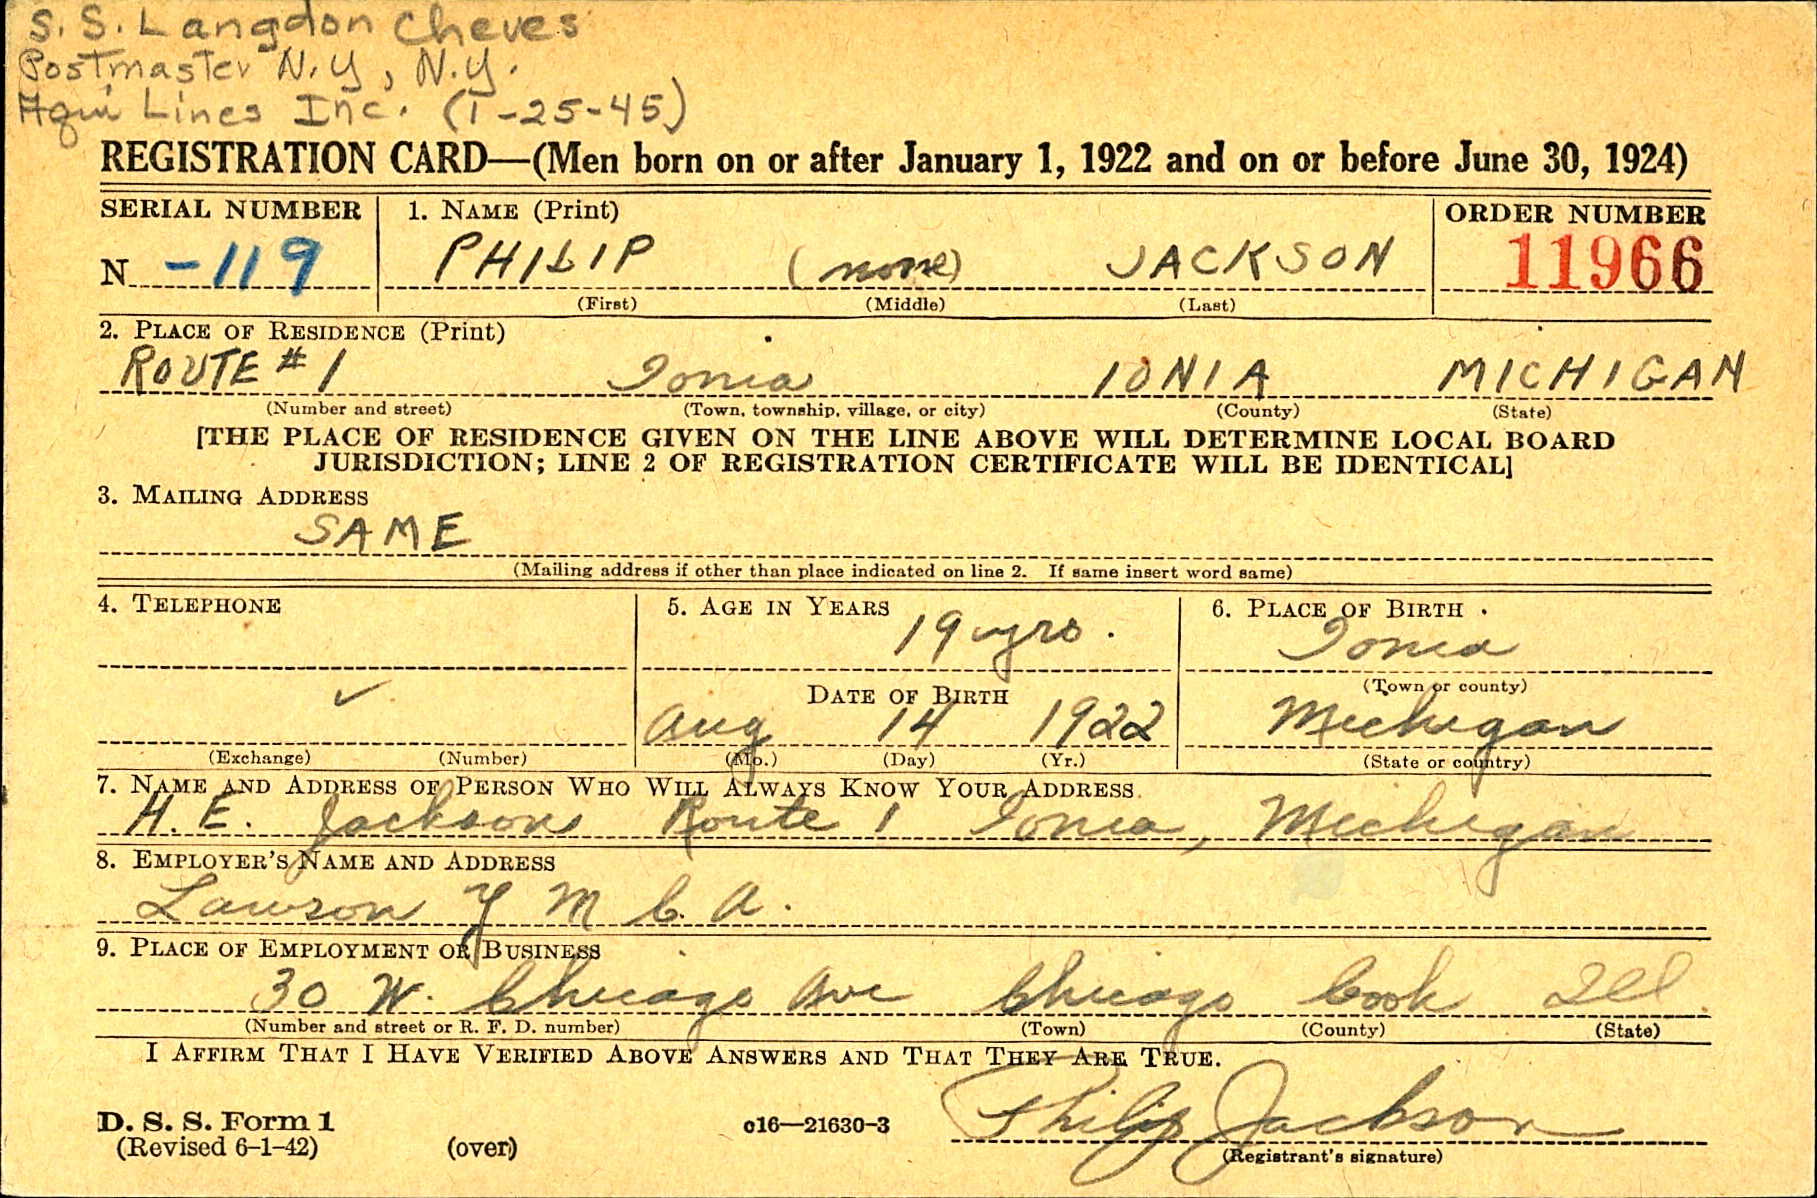 S. S. Langdon Cheves
Postmaster N.Y, N.Y.
Lines Inc. (1-25-45)
REGISTRATION CARD—(Men born on or after January 1, 1922 and on or before June 30, 1924)
SERIAL NUMBER 1. NAME (Print) ORDER NUMBER
N -119 PHILIP (none) JACKSON 11966
(First) (Middle) (Last)
2. PLACE OF RESIDENCE (Print)
ROUTE # 1 Ionia IONIA MICHIGAN
(Number and street) (Town, township, village, or city) (County) (State)
[THE PLACE OF RESIDENCE GIVEN ON THE LINE ABOVE WILL DETERMINE LOCAL BOARD
JURISDICTION; LINE 2 OF REGISTRATION CERTIFICATE WILL BE IDENTICAL]
3. MAILING ADDRESS
SAME
(Mailing address if other than place indicated on line 2. If same insert word same)
4. TELEPHONE 5. AGE IN YEARS 6. PLACE OF BIRTH
19 yrs. Ionia
(Town or county)
DATE OF BIRTH
Aug 14 1922 Michigan
(Exchange) (Number) (Mo.) (Day) (Yr.) (State or country)
7. NAME AND ADDRESS OF PERSON WHO WILL ALWAYS KNOW YOUR ADDRESS
H. E. Jackson Route 1 Ionia, Michigan
8. EMPLOYER'S NAME AND ADDRESS
Lawson Y M C. A.
9. PLACE OF EMPLOYMENT OR BUSINESS
30 W. Chicago Ave Chicago Cook Ill.
(Number and street or R. F. D. number) (Town) (County) (State)
I AFFIRM THAT I HAVE VERIFIED ABOVE ANSWERS AND THAT THEY ARE TRUE.
Philip Jackson
D. S. S. Form 1 c16—21630-3
(Revised 6-1-42) (over) (Registrant's signature)